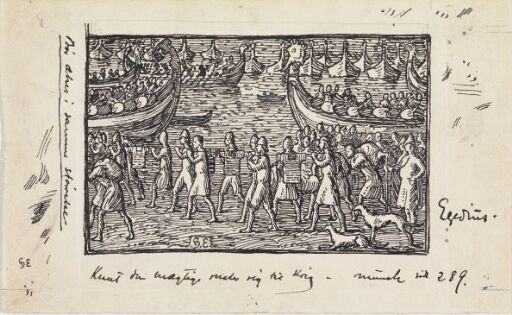 i samme størrelse
Egedius.
Knut den mægtige ruster sig til Krig - munch sid 289.